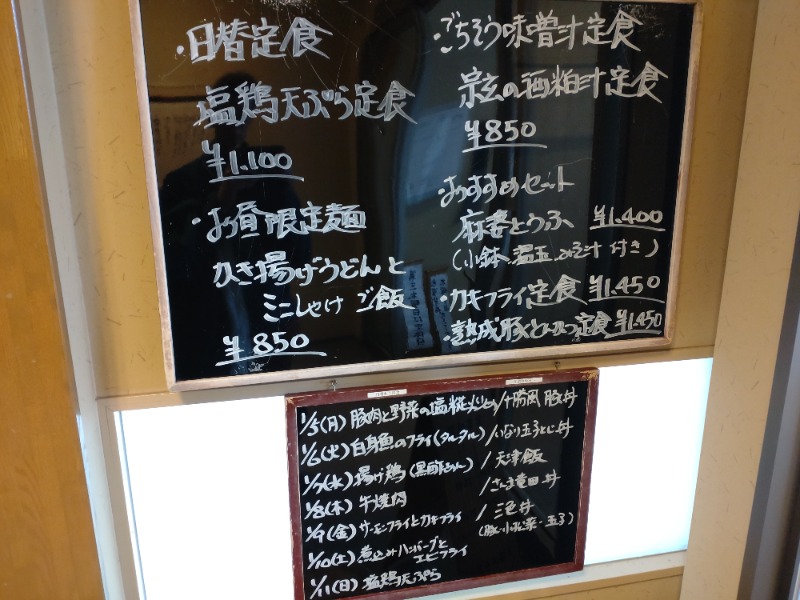 ・日替定食
塩鶏天ぷら定食
¥1.100
・お昼限定麺
かき揚げうどんと
ミニしゃけご飯
¥850
・ごちそう味噌汁定食
宗玄の酒粕汁定食
¥850
・おすすめセット
麻婆とうふ ¥1.400
(小鉢、温玉、みそ汁付き)
・カキフライ定食 ¥1.450
・熟成豚とんかつ定食 ¥1.450
1/5(月) 豚肉と野菜の塩糀炒め/十勝風豚丼
1/6(火) 白身魚のフライ(タルタル)/いなり玉子とじ丼
1/7(水) 揚げ鶏(黒酢あん)/天津飯
1/8(木) 牛焼肉/さんま竜田丼
1/9(金) サーモンフライとカキフライ/三色丼
(豚・小松菜・玉子)
1/10(土) 煮込みハンバーグと
エビフライ
1/11(日) 塩鶏天ぷら